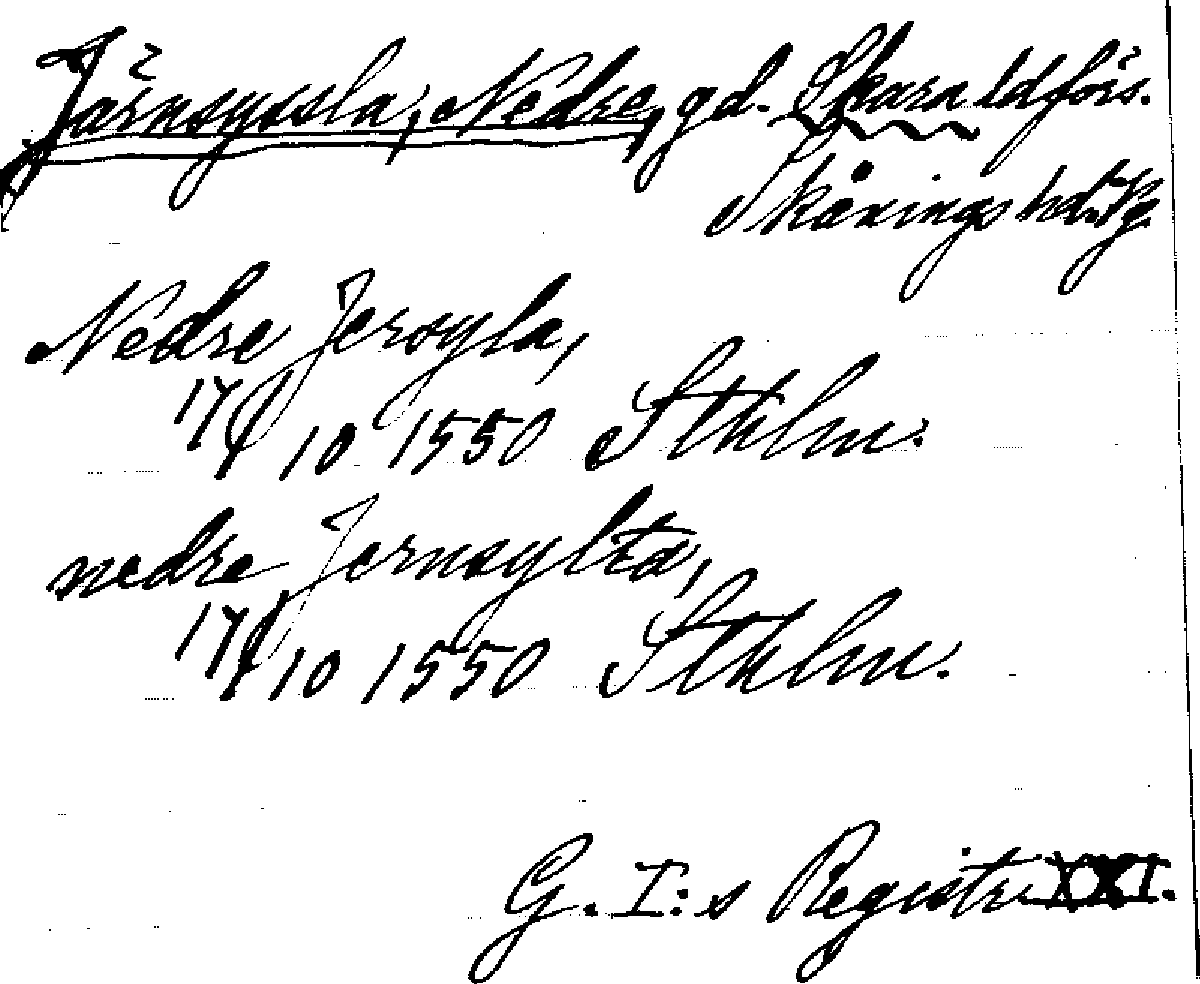 Järnsyssla, Nedre, gd. Skara ldförs.
Skånings hd. Vg.
Nedre Jersyla,
17/10 1550 Sthlm.
nedre Jernsylta,
17/10 1550 Sthlm.
G. I:s Registr. XXI.